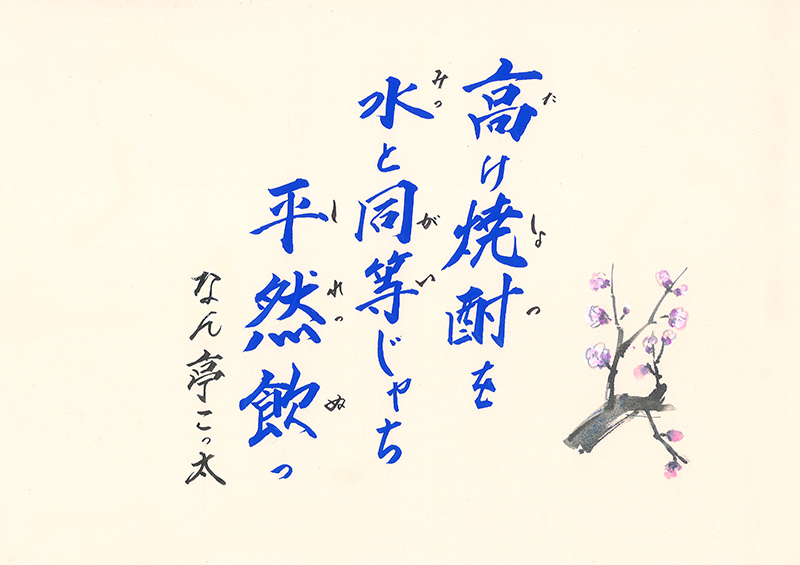 高け焼酎を
た
しょ
つ
水と同等じゃち
みっ
がい
平然飲っ
しれっ
ぬ
なん亭こっ太